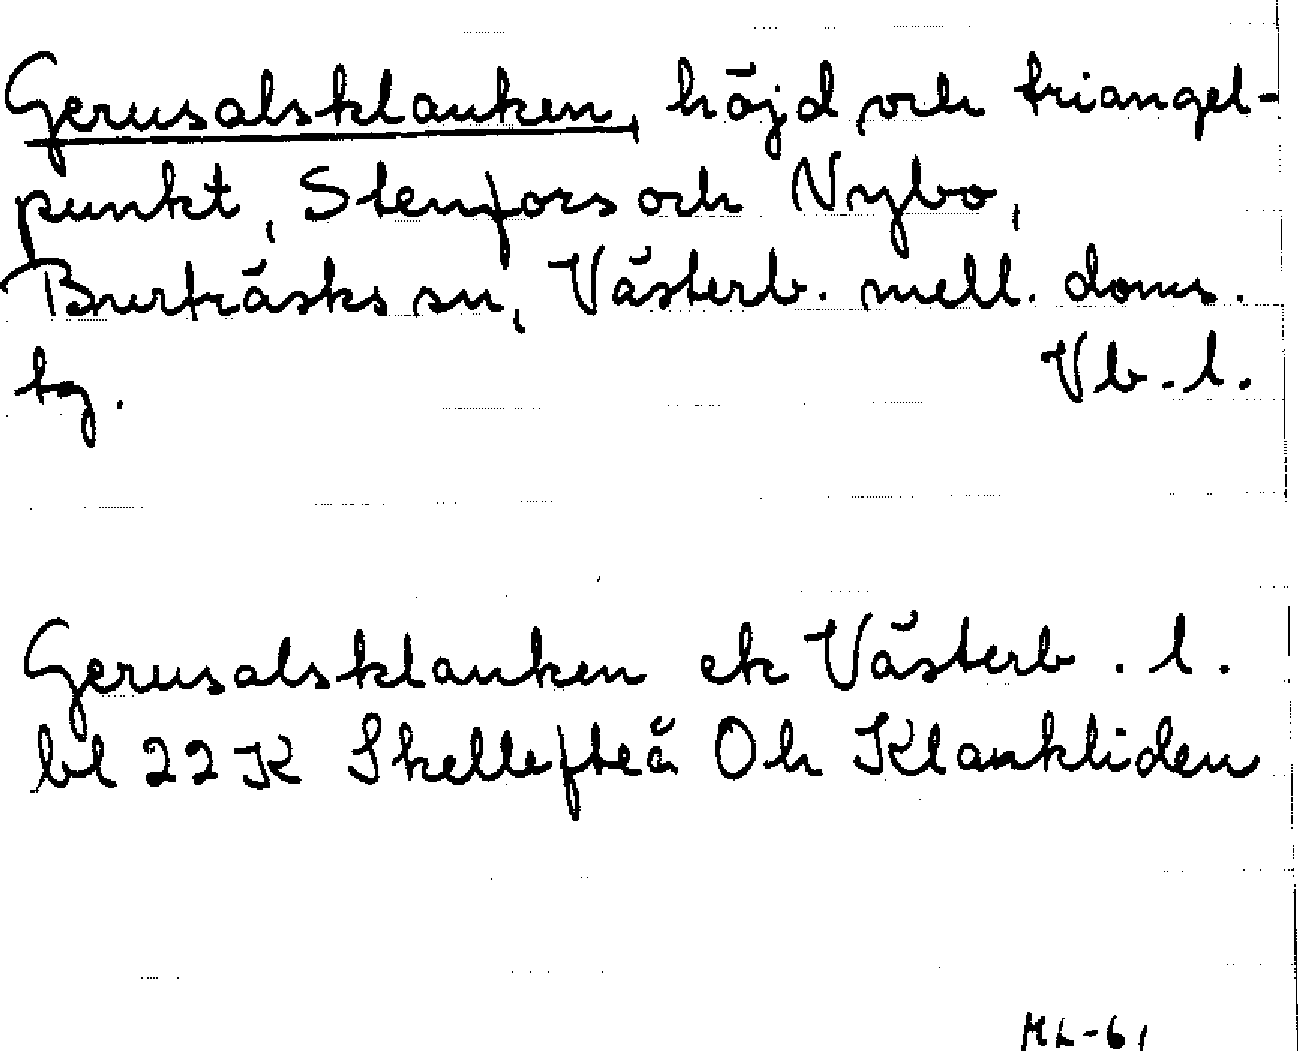 Gerusalsklauken, höjd och triangel-
punkt, Stenfors och Nybo,
Burträsks sn, Västerb. mell. doms.
tg.
Vb. l.
Gerusalsklauken ek Västerb. l.
bl 22K Skellefteå Oh Klaukliden
ML-61